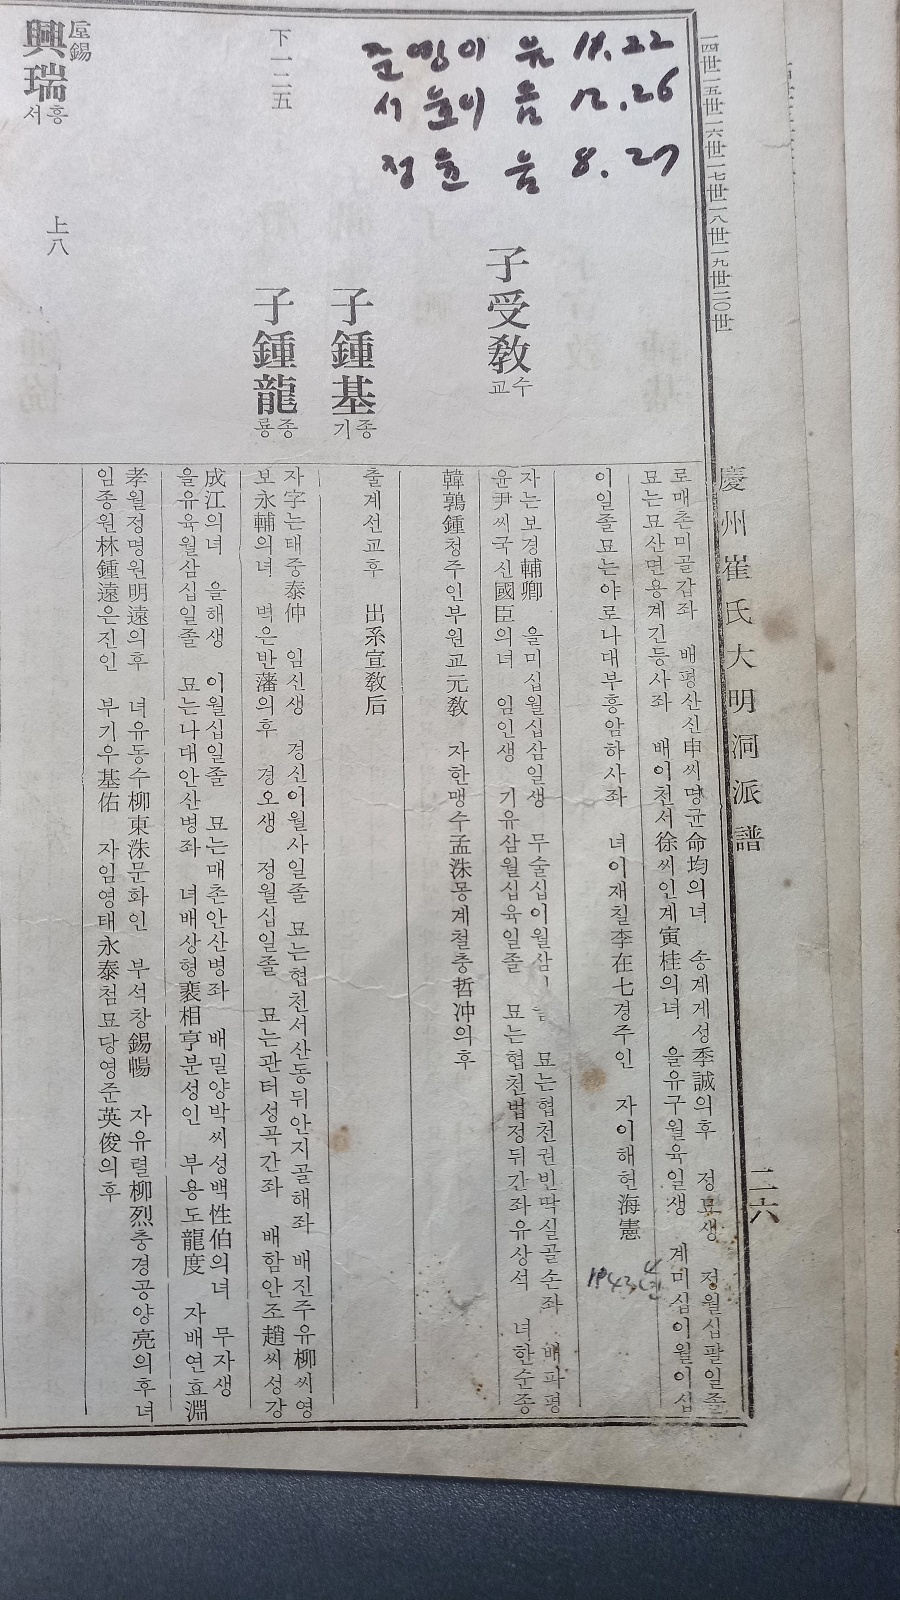 준영이 음 11.22
서윤이 음 12.26
정윤 음 8.27
一四世一五世一六世一七世一八世一九世二〇世
慶州崔氏大明洞派譜
二六
로매촌미골갑좌 배평산신申씨명균命均의녀 송계게성季誠의후 정묘생 정월십팔일졸
묘는묘산면용계긴등사좌 배이천서徐씨인계寅桂의녀 을유구월육일생 계미십이월이십
이일졸묘는야로나대부흥암하사좌 녀이재칠李在七경주인 자이해헌海憲
1943년
子受敎
수교
자는보경輔卿 을미십월십삼일생 무술십이월삼 묘는협천권빈딱실골손좌 배파평
윤尹씨국신國臣의녀 임인생 기유삼월십육일졸 묘는협천법정뒤간좌유상석 녀한순종
韓淳鍾청주인부원교元敎 자한맹수孟洙몽계철충哲冲의후
子鍾基
종기
출계선교후 出系宣敎后
下一二五
子鍾龍
종룡
자字는태중泰仲 임신생 경신이월사일졸 묘는협천서산동뒤안지골해좌 배진주유柳씨영
보永輔의녀 벽은반藩의후 경오생 정월십일졸 묘는관터성곡간좌 배함안조趙씨성강
成江의녀 을해생 이월십일졸 묘는매촌안산병좌 배밀양박씨성백性伯의녀 무자생
을유육월삼십일졸 묘는나대안산병좌 녀배상형裵相亨분성인 부용도龍度 자배연효淵
孝월정명원明遠의후 녀유동수柳東洙문화인 부석창錫暢 자유렬柳烈충경공양亮의후녀
임종원林鍾遠은진인 부기우基佑 자임영태永泰첨묘당영준英俊의후
上八
興瑞
흥서